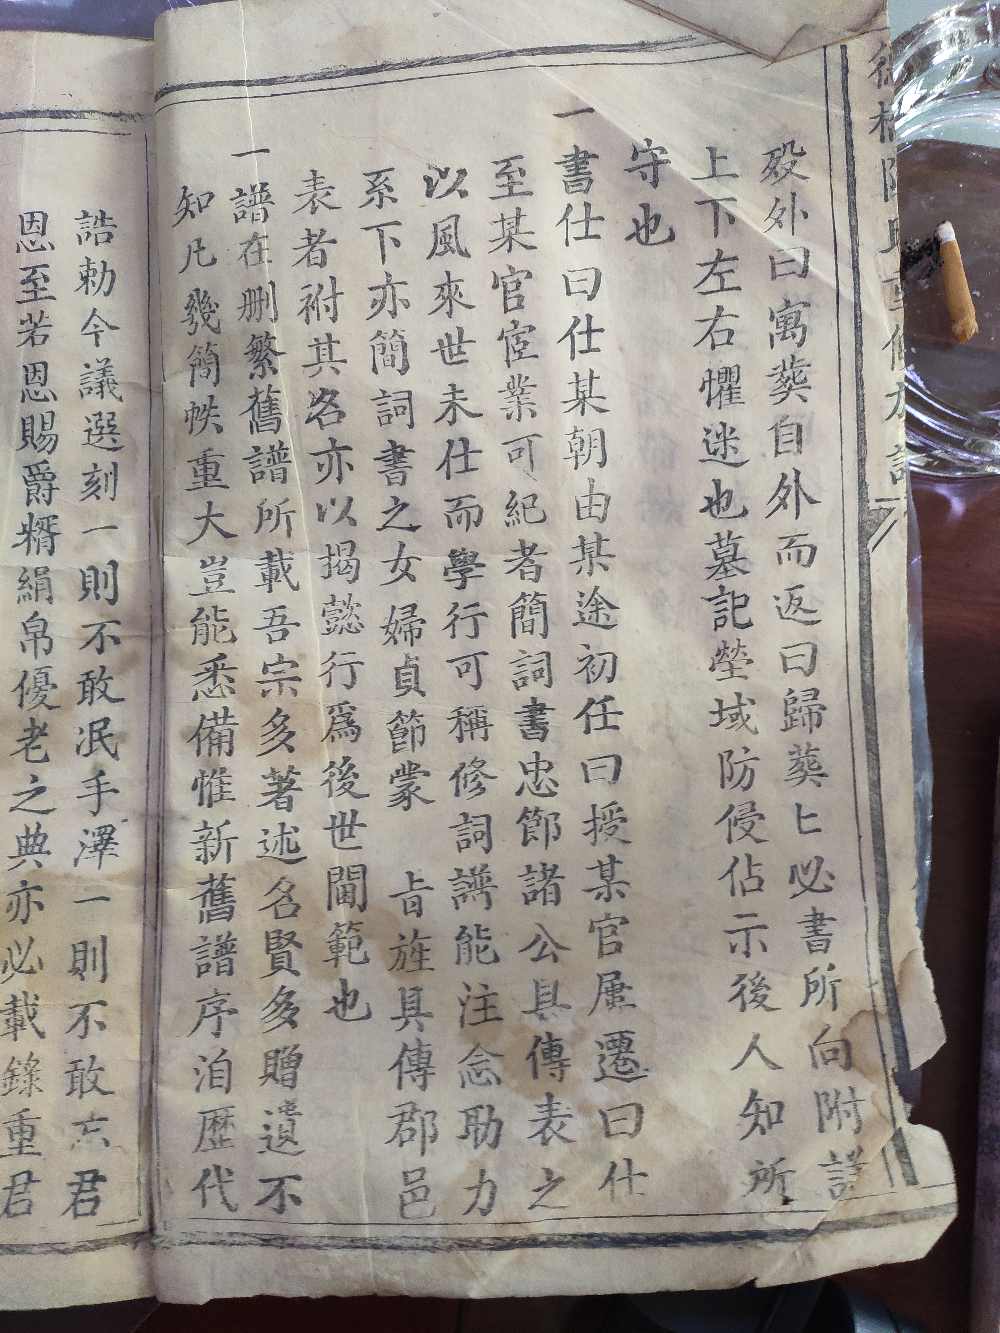 歿外曰寓葬自外而返曰歸葬匕必書所向附詳
上下左右懼迷也墓記塋域防侵佔示後人知所
守也
一書仕曰仕某朝由某途初任曰授某官屢遷曰仕
至某官宦業可紀者簡詞書忠節諸公具傳表之
以風來世未仕而學行可稱修詞譜能注念助力
系下亦簡詞書之女婦貞節蒙 旨旌具傳郡邑
表者祔其名亦以揭懿行爲後世閫範也
一譜在刪繁舊譜所載吾宗多著述名賢多贈遺不
知凡幾簡帙重大豈能悉備惟新舊譜序洎歷代
誥勅今議選刻一則不敢泯手澤一則不敢忘君
恩至若恩賜爵糈絹帛優老之典亦必載錄重君